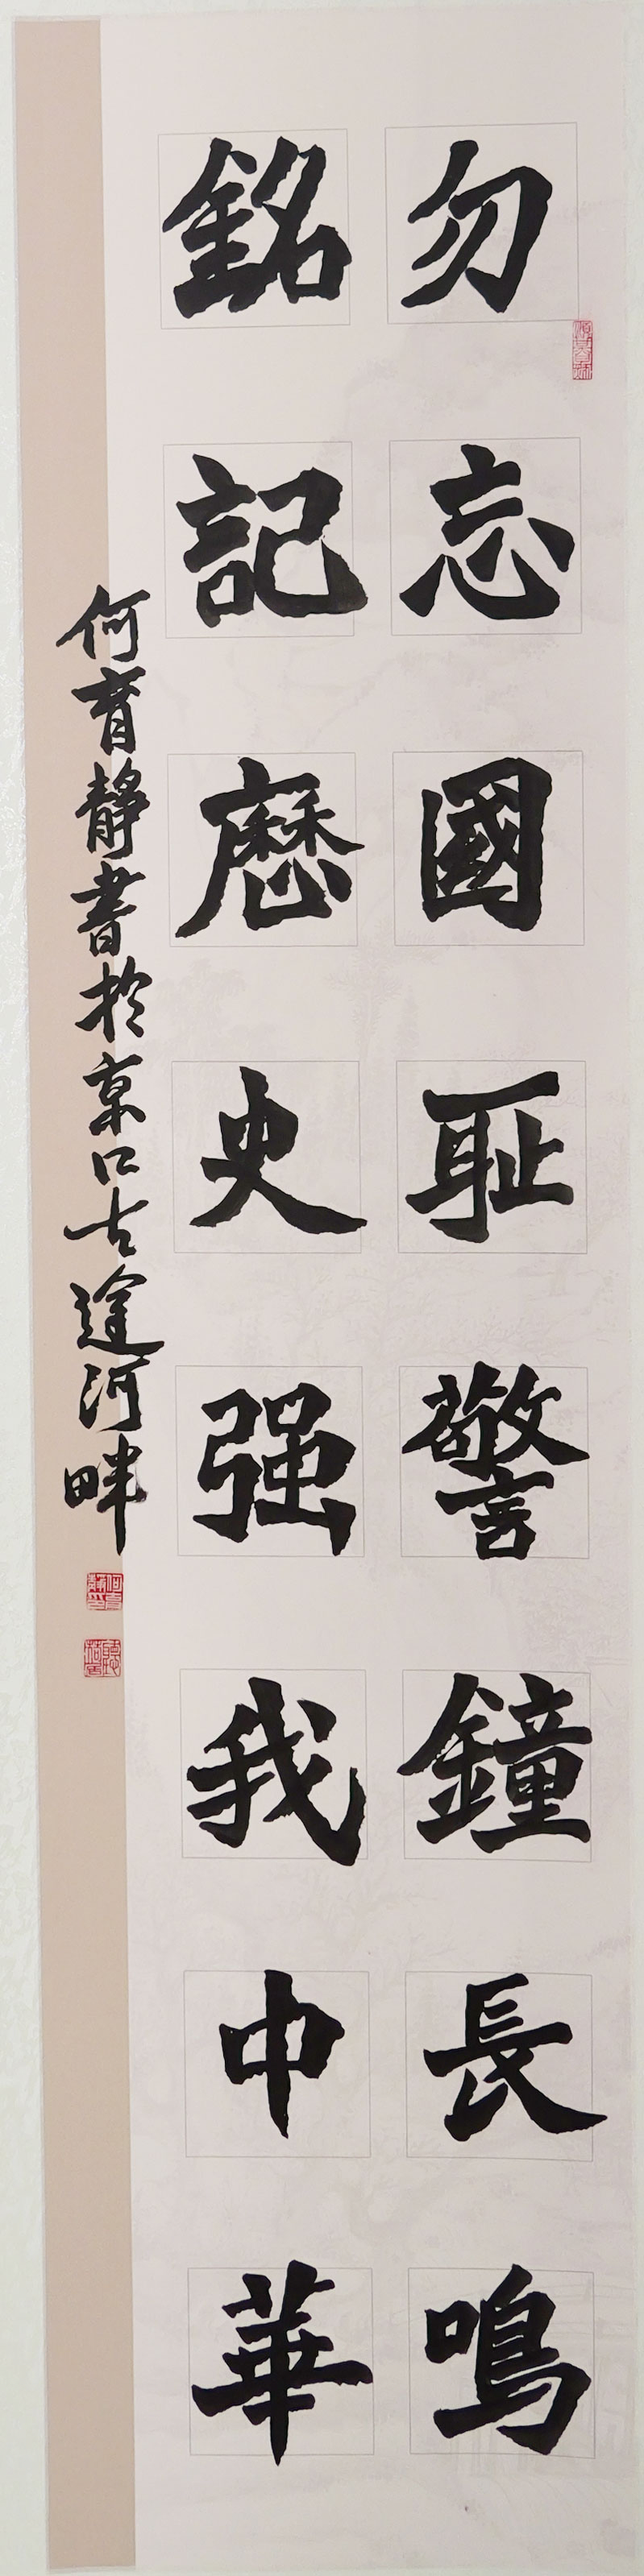 勿忘國耻警鐘長鳴
銘記歷史强我中華
何育靜書於京口古運河畔